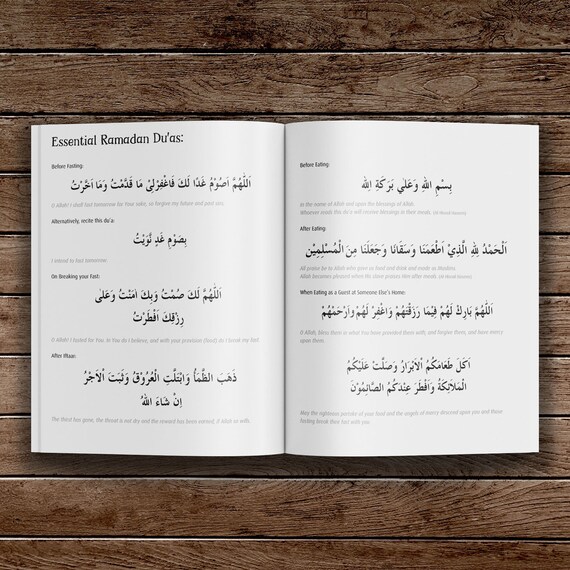 Essential Ramadan Du'as:
Before Fasting:
اَللّٰهُمَّ اَصُوْمُ غَدًا لَكَ فَاغْفِرْلِيْ مَا قَدَّمْتُ وَمَا اَخَّرْتُ
O Allah! I shall fast tomorrow for Your sake, so forgive my future and past sins.
Alternatively, recite this du'a:
بِصَوْمِ غَدٍ نَّوَيْتُ
I intend to fast tomorrow
On Breaking your Fast:
اَللّٰهُمَّ لَكَ صُمْتُ وَبِكَ اٰمَنْتُ وَعَلٰى
رِزْقِكَ اَفْطَرْتُ
O Allah! I fasted for You, in You do I believe, and with your provision (food) do I break my fast
After Iftaar:
ذَهَبَ الظَّمَأُ وَابْتَلَّتِ الْعُرُوْقُ وَثَبَتَ الْاَجْرُ
اِنْ شَاءَ اللهُ
The thirst has gone, the throat is not dry and the reward has been earned, if Allah so wills.
Before Eating:
بِسْمِ اللهِ وَعَلٰي بَرَكَةِ اللهِ
In the name of Allah and upon the blessings of Allah.
Whoever reads this du'a will receive blessings in their meals.
After Eating:
اَلْحَمْدُ لِلّٰهِ الَّذِيْ اَطْعَمَنَا وَسَقَانَا وَجَعَلَنَا مِنَ الْمُسْلِمِيْنَ
All praise be to Allah who gives us food and drink and made us Muslims.
Allah becomes pleased when His slave praises Him after meals.
When Eating as a Guest at Someone Else's Home:
اَللّٰهُمَّ بَارِكْ لَهُمْ فِيْمَا رَزَقْتَهُمْ وَاغْفِرْ لَهُمْ وَارْحَمْهُمْ
O Allah, bless them in what You have provided them with, and forgive them, and have mercy
upon them.
اَكَلَ طَعَامَكُمُ الْاَبْرَارُ وَصَلَّتْ عَلَيْكُمُ
الْمَلَائِكَةُ وَاَفْطَرَ عِنْدَكُمُ الصَّائِمُوْنَ
May the righteous partake of your food and the angels of mercy descend upon you and those
fasting break their fast with you.